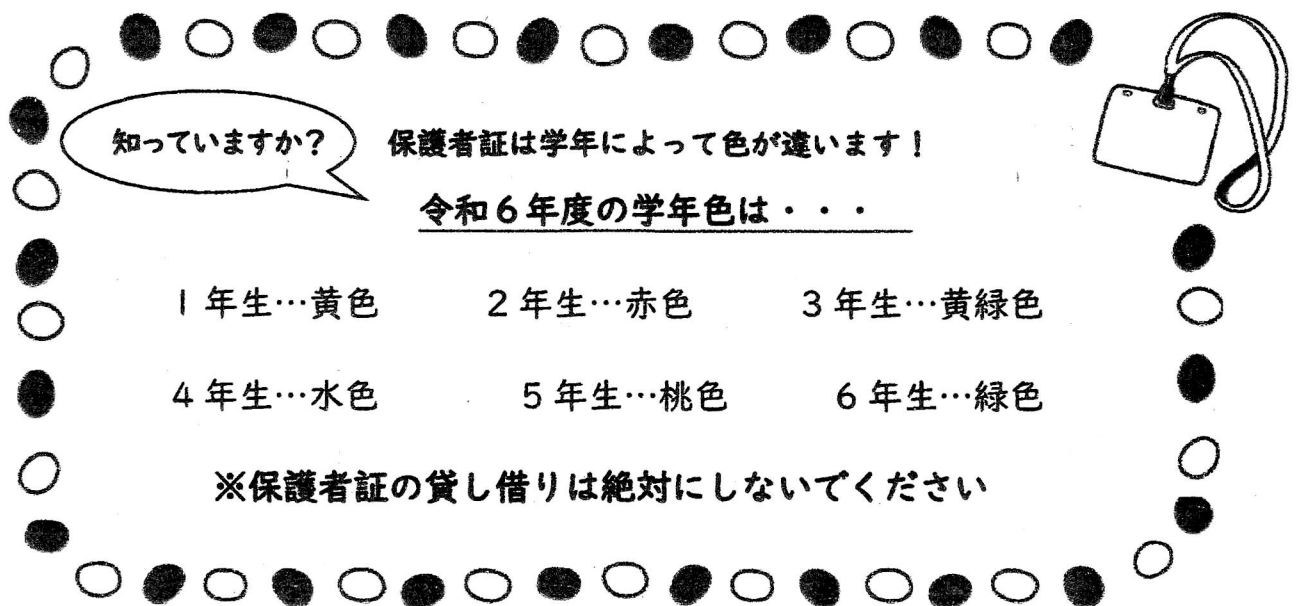 知っていますか? 保護者証は学年によって色が違います!
令和6年度の学年色は・・・
1年生…黄色 2年生…赤色 3年生…黄緑色
4年生…水色 5年生…桃色 6年生…緑色
※保護者証の貸し借りは絶対にしないでください